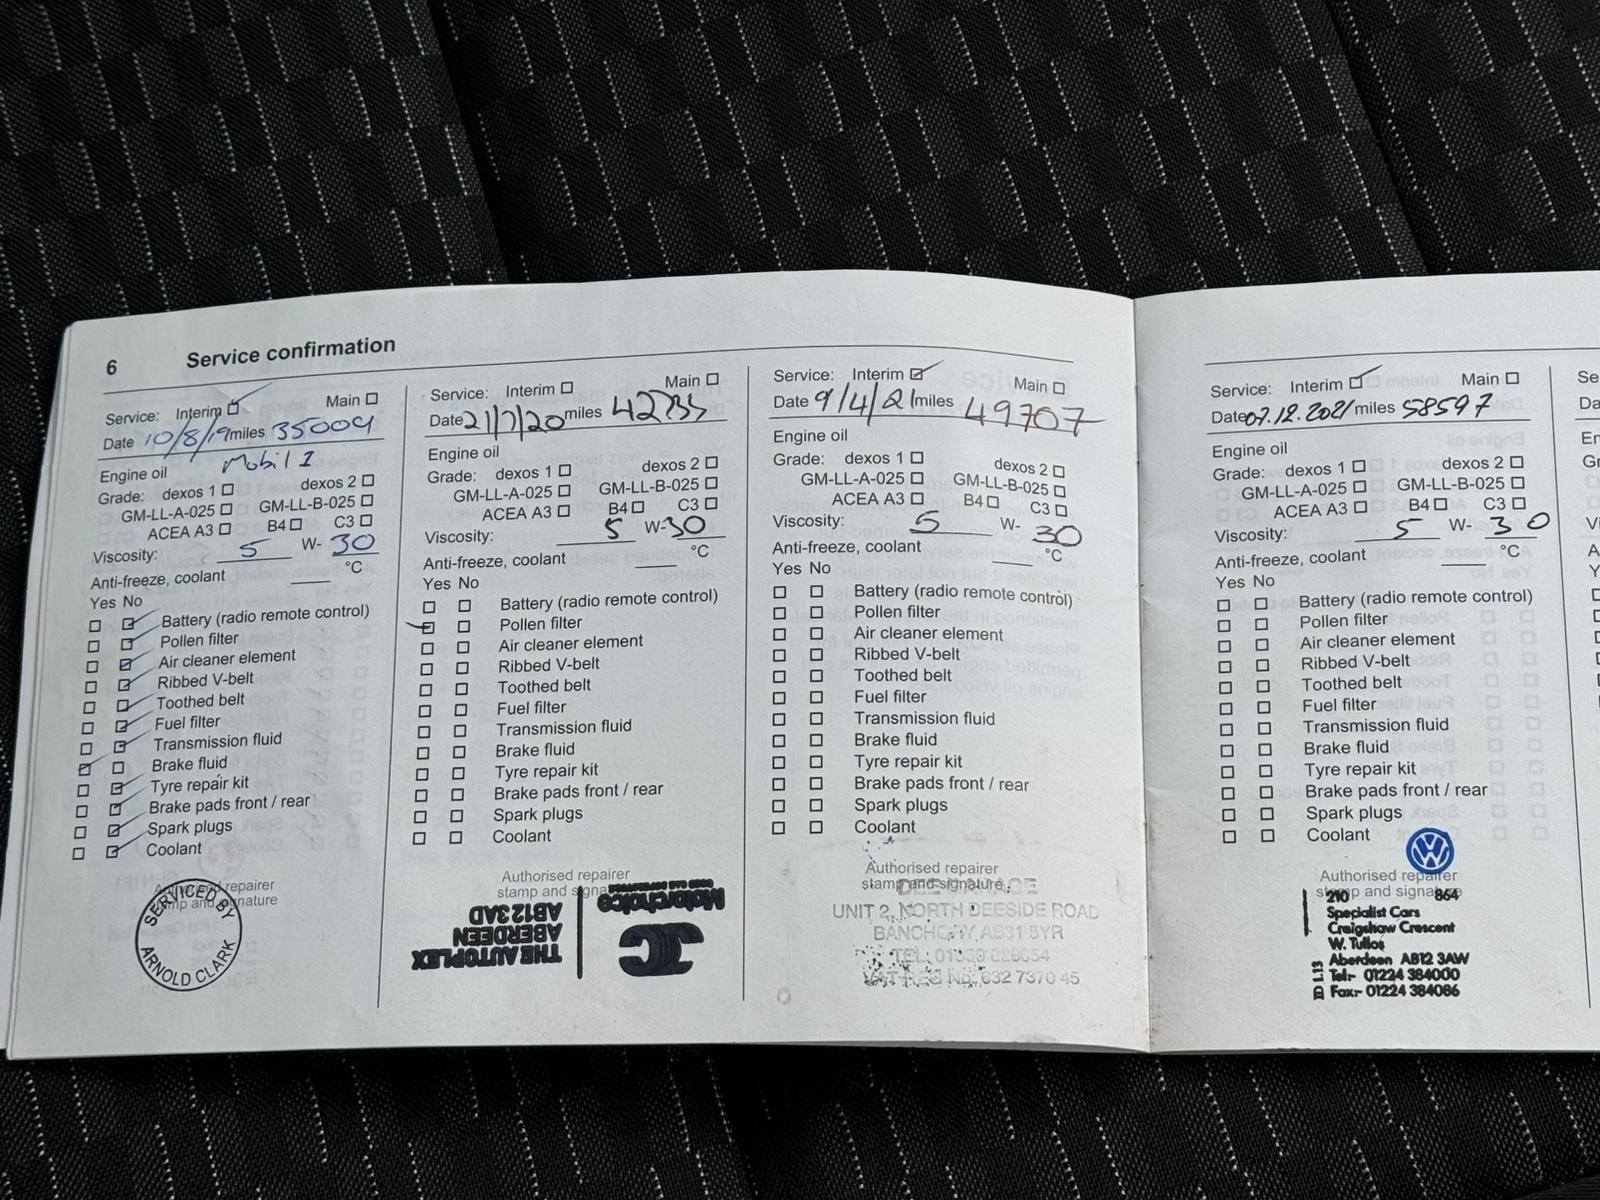 6 Service confirmation
Service: Interim Main
Date 10/8/19 miles 35009
Engine oil Mobil 1
Grade: dexos 1 dexos 2
GM-LL-A-025 GM-LL-B-025
ACEA A3 B4 C3
Viscosity: 5 W- 30
Anti-freeze, coolant °C
Yes No
Battery (radio remote control)
Pollen filter
Air cleaner element
Ribbed V-belt
Toothed belt
Fuel filter
Transmission fluid
Brake fluid
Tyre repair kit
Brake pads front / rear
Spark plugs
Coolant
repairer
and signature
SERVICED BY
ARNOLD CLARK
Service: Interim Main
Date 21/7/20 miles 42735
Engine oil
Grade: dexos 1 dexos 2
GM-LL-A-025 GM-LL-B-025
ACEA A3 B4 C3
Viscosity: 5 W-30
Anti-freeze, coolant °C
Yes No
Battery (radio remote control)
Pollen filter
Air cleaner element
Ribbed V-belt
Toothed belt
Fuel filter
Transmission fluid
Brake fluid
Tyre repair kit
Brake pads front / rear
Spark plugs
Coolant
Authorised repairer
stamp and
Motorchoice
THE AUTOPLEX
ABERDEEN
AB12 3AD
Service: Interim Main
Date 9/4/21 miles 49707
Engine oil
Grade: dexos 1 dexos 2
GM-LL-A-025 GM-LL-B-025
ACEA A3 B4 C3
Viscosity: 5 W- 30
Anti-freeze, coolant °C
Yes No
Battery (radio remote control)
Pollen filter
Air cleaner element
Ribbed V-belt
Toothed belt
Fuel filter
Transmission fluid
Brake fluid
Tyre repair kit
Brake pads front / rear
Spark plugs
Coolant
Authorised repairer
stamp and signature
DEE GARAGE
UNIT 2, NORTH DEESIDE ROAD
BANCHORY AB31 5YR
TEL:
VAT REG No. 632 7370 45
Service: Interim Main
Date 07.12.2021 miles 58597
Engine oil
Grade: dexos 1 dexos 2
GM-LL-A-025 GM-LL-B-025
ACEA A3 B4 C3
Viscosity: 5 W- 30
Anti-freeze, coolant °C
Yes No
Battery (radio remote control)
Pollen filter
Air cleaner element
Ribbed V-belt
Toothed belt
Fuel filter
Transmission fluid
Brake fluid
Tyre repair kit
Brake pads front / rear
Spark plugs
Coolant
Authorised repairer
stamp and signature
210 864
Specialist Cars
Craigshaw Crescent
W. Tullos
Aberdeen AB12 3AW
Tel:- 01224 384000
Fax:- 01224 384086